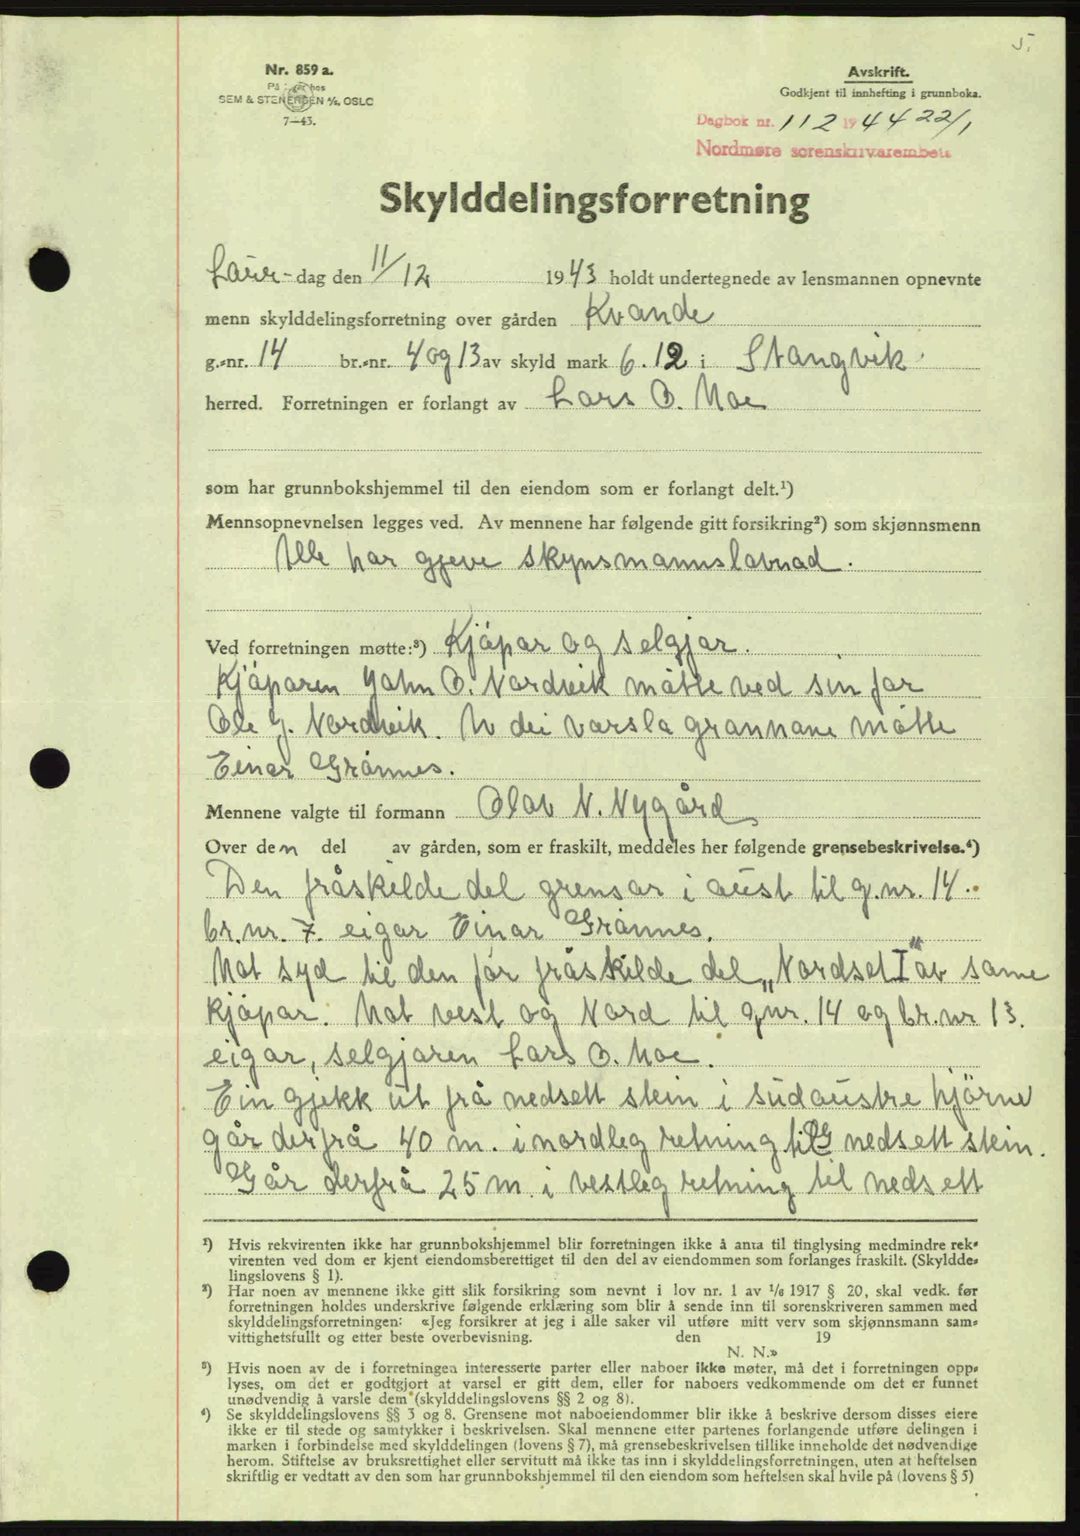 5.
Nr. 859 a.
På lager hos
SEM & STENERSEN A/S, OSLO
7-43.
Avskrift.
Godkjent til innhefting i grunnboka.
Dagbok nr. 112 1944 22/1
Nordmøre sorenskriverembete
Skylddelingsforretning
Laur-dag den 11/12 1943 holdt undertegnede av lensmannen opnevnte
menn skylddelingsforretning over gården Kvande
g.-nr. 14 br.-nr. 4 og 13 av skyld mark 6.12 i Stangvik
herred. Forretningen er forlangt av Lars O. Moe
som har grunnbokshjemmel til den eiendom som er forlangt delt.¹)
Mennsopnevnelsen legges ved. Av mennene har følgende gitt forsikring²) som skjønnsmenn
Alle har gjeve skynsmannslovnad.
Ved forretningen møtte:³) Kjøpar og selgjar.
Kjøparen John O. Nordvik møtte ved sin far
Ole J. Nordvik. Av dei varsla grannane møtte
Einar Grønnes.
Mennene valgte til formann Olav N. Nygård
Over den del av gården, som er fraskilt, meddeles her følgende grensebeskrivelse.⁴)
Den fråskilde del grensar i aust til g.nr. 14.
br.nr. 7. eigar Einar Grønnes.
Mot syd til den før fråskilde del „Nordset I" av same
kjøpar. Mot vest og Nord til g.nr. 14 og br.nr 13.
eigar, selgjaren Lars O. Moe.
Ein gjekk ut frå nedsett stein i sudaustre hjörne
går derfrå 40 m. i nordleg retning til nedsett stein.
Går derfrå 25 m. i vestleg retning til nedsett
¹) Hvis rekvirenten ikke har grunnbokshjemmel blir forretningen ikke å anta til tinglysing medmindre rek-
virenten ved dom er kjent eiendomsberettiget til den del av eiendommen som forlanges fraskilt. (Skyldde-
lingslovens § 1).
²) Har noen av mennene ikke gitt slik forsikring som nevnt i lov nr. 1 av 1/6 1917 § 20, skal vedk. før
forretningen holdes underskrive følgende erklæring som blir å sende inn til sorenskriveren sammen med
skylddelingsforretningen: «Jeg forsikrer at jeg i alle saker vil utføre mitt verv som skjønnsmann sam-
vittighetsfullt og etter beste overbevisning. den 19
N. N.»
³) Hvis noen av de i forretningen interesserte parter eller naboer ikke møter, må det i forretningen opp-
lyses, om det er godtgjort at varsel er gitt dem, eller for naboers vedkommende om det er funnet
unødvendig å varsle dem (skylddelingslovens §§ 2 og 8).
⁴) Se skylddelingslovens §§ 3 og 8. Grensene mot naboeiendommer blir ikke å beskrive dersom disses eiere
ikke er til stede og samtykker i beskrivelsen. Skal mennene etter partenes forlangende utføre delingen i
marken i forbindelse med skylddelingen (lovens § 7), må grensebeskrivelsen tillike inneholde det nødvendige
herom. Stiftelse av bruksrettighet eller servitutt må ikke tas inn i skylddelingsforretningen, uten at heftelsen
skriftlig er vedtatt av den som har grunnbokshjemmel til den eiendom som heftelsen skal hvile på (lovens § 5)